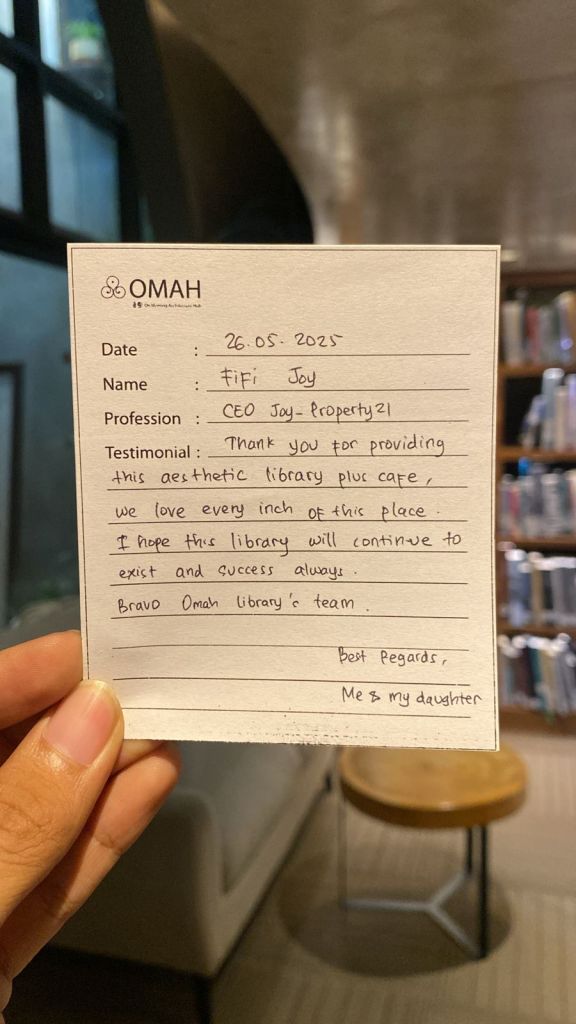 OMAH
Date : 26.05.2025
Name : FiFi Joy
Profession : CEO Joy-Property21
Testimonial : Thank you for providing
this aesthetic library plus cafe,
we love every inch of this place.
I hope this library will continue to
exist and success always.
Bravo Omah library's team.
Best Regards,
Me & my daughter